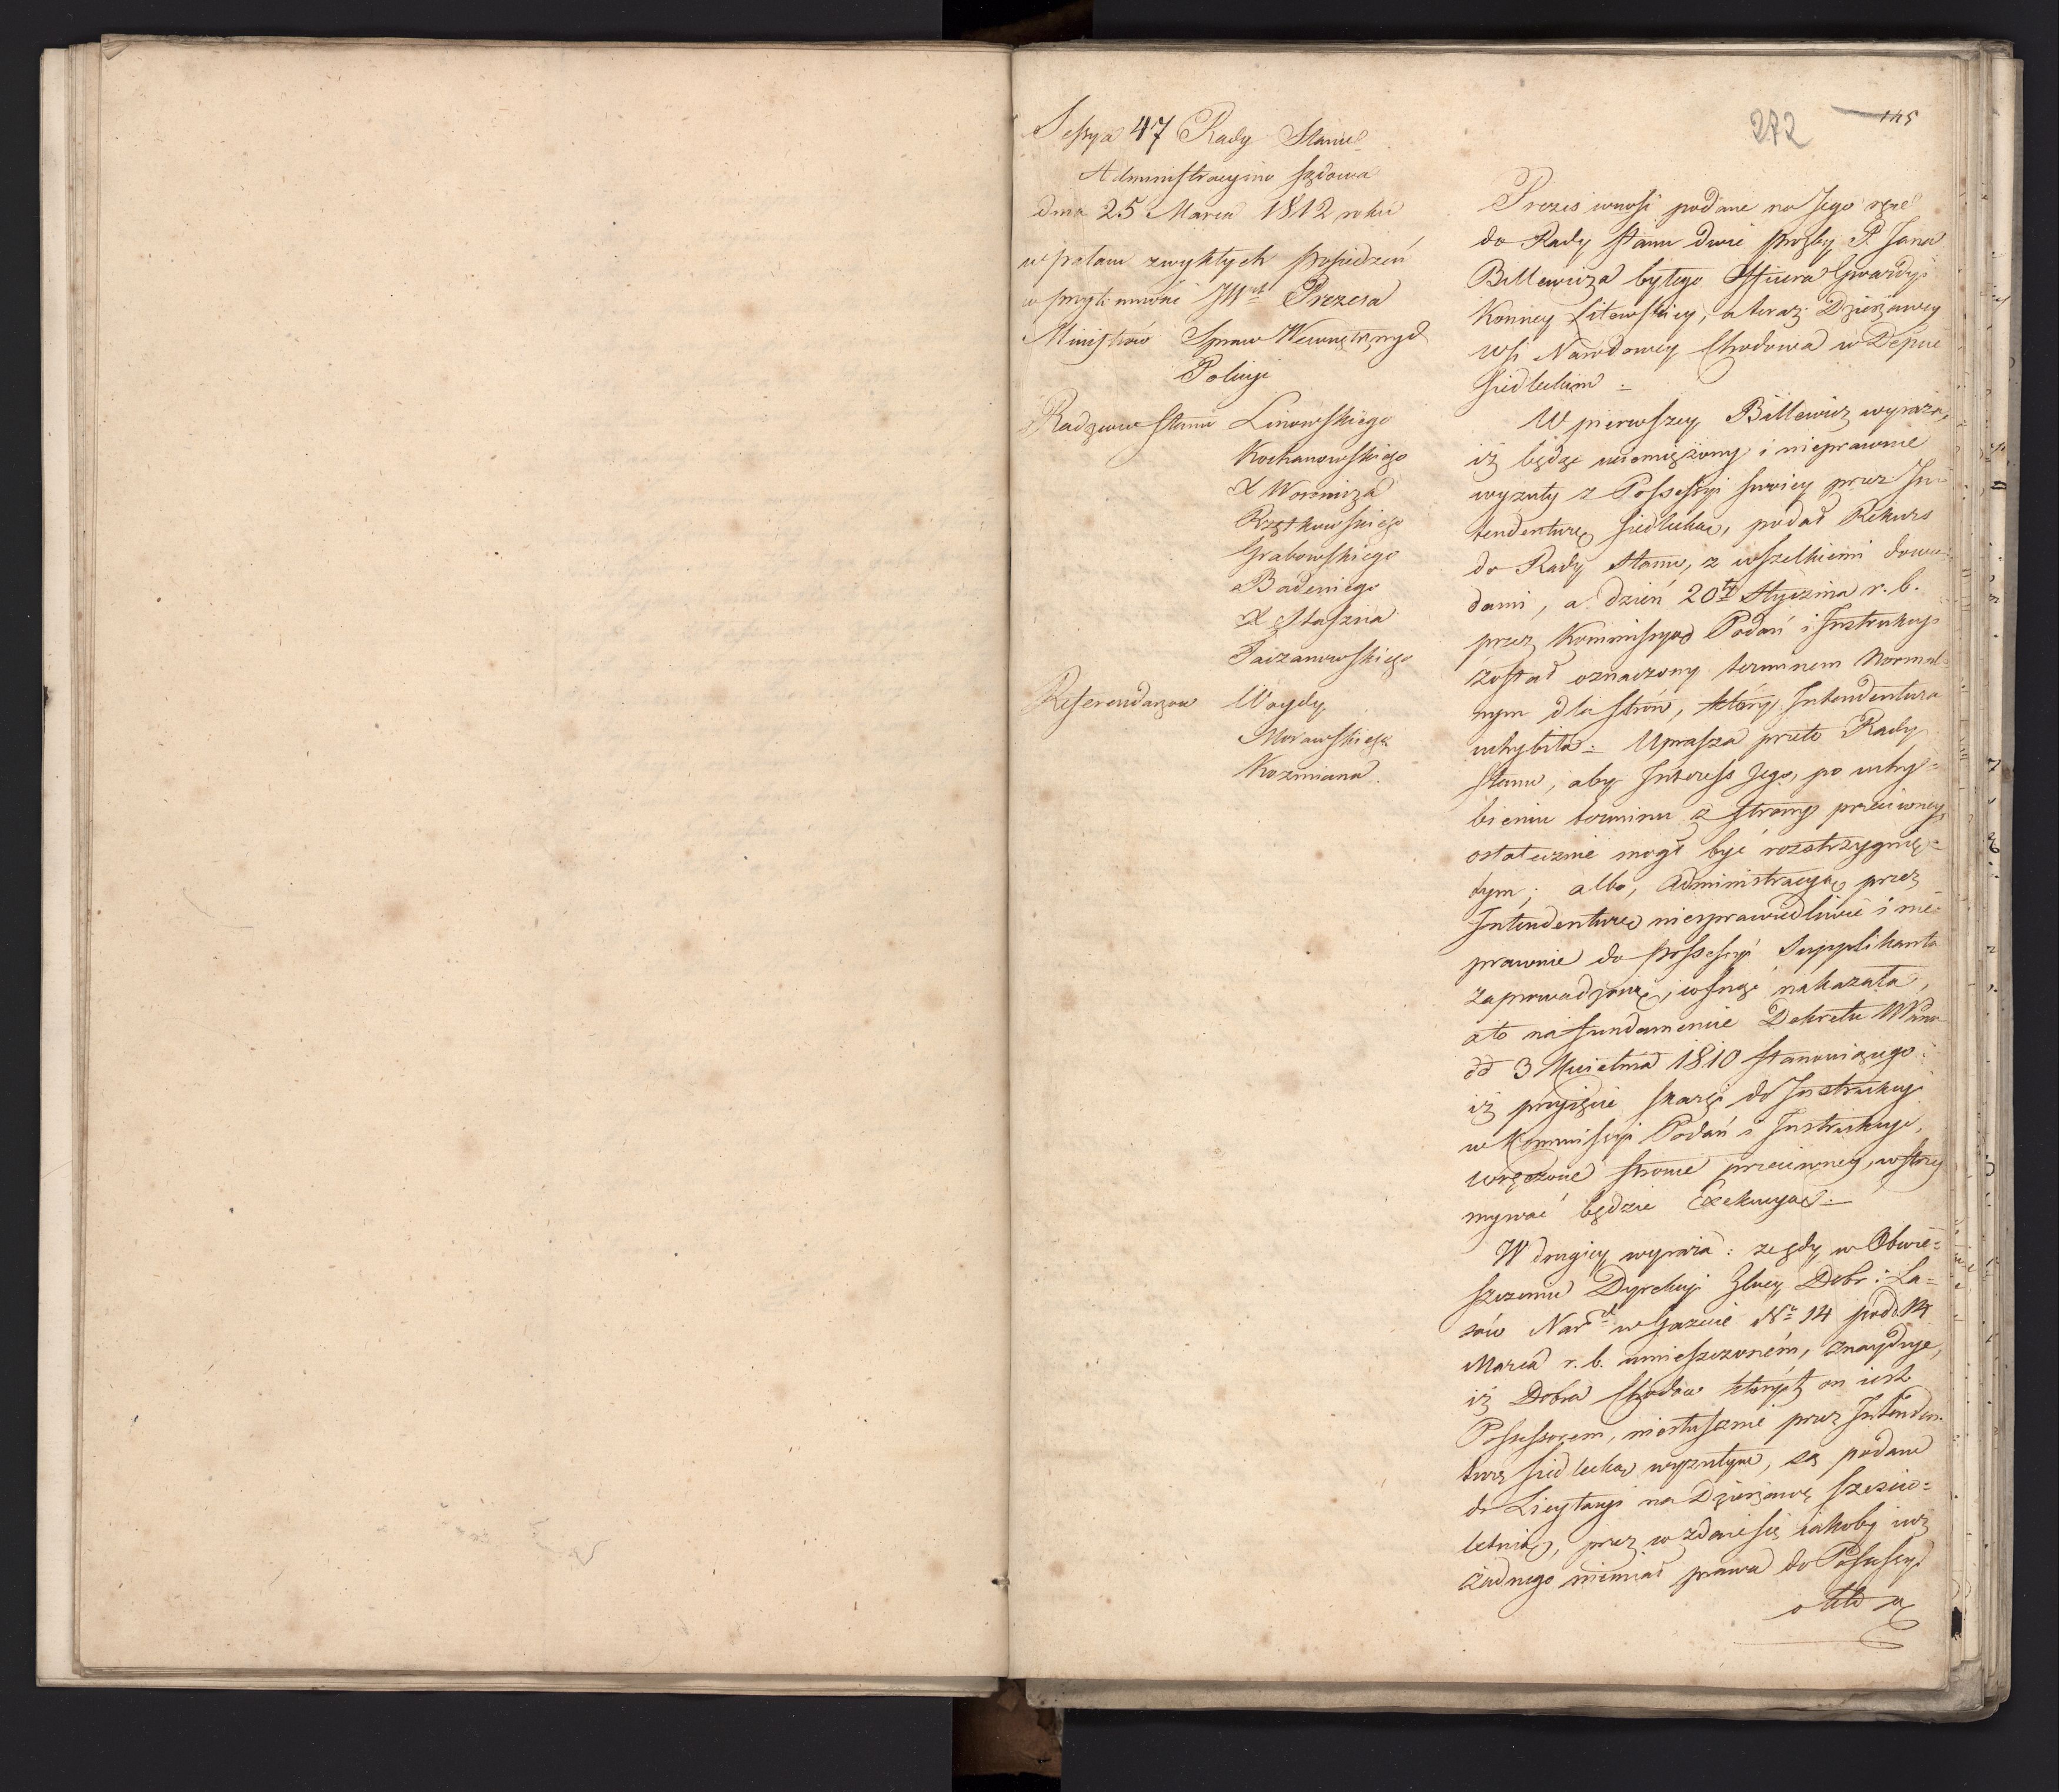 272 145
Sessya 47 Rady Stanu
Administracyino sądowa
dnia 25 Marca 1812 roku
w pałacu zwykłych posiedzeń
w przytomności JWch Prezesa
Ministrów Spraw Wewnętrznych
Policyi
Radzców Stanu Linowskiego
Kochanowskiego
X Woronicza
Rzętkowskiego
Grabowskiego
Badeniego
X Staszica
Taczanowskiego
Referendarzow Woydy
Morawskiego
Kozmiana
Prezes wnosi podane na Jego ręce
do Rady Stanu dwie prozby P. Jana
Billewicza byłego Officera Gwardyi
Konney Litewskiey, a teraz Dzierżawcy
Wsi Narodowey Chodowa w Depcie
Siedleckim =
W pierwszey Billewicz wyraża,
iż będąc uciemiężony i nieprawnie
wyzuty z Possessyi swoiey przez In=
tendenturę Siedlecką, podał Rekurs
do Rady Stanu, z wszelkiemi dowo=
dami, a dzień 20ty Stycznia r. b.
przez Kommissyą Podań i Instrukcyi
został oznaczony terminem normal=
nym dla stron, który Intendentura
uchybiła = Uprasza przeto Rady
Stanu, aby Interess Jego, po uchy=
bieniu terminu z strony przeciwney,
ostatecznie mogł być rozstrzygnię=
tym; albo, Administracyą przez
Intendenturę niesprawiedliwie i nie=
prawnie do possessyi Supplikanta
zaprowadzoną, cofnąć nakazała,
a to na fundamencie Dekretu
dd 3 Kwietnia 1810 stanowiącego
iż przyięcie skargi do Instrukcyi
w Kommissyi Podań i Instrukcyi,
wręczone stronie przeciwney, wstrzy
mywać będzie Exekucyą =
W drugiey wyraża: że gdy w Obwie=
szczeniu Dyrekcyi Głney Dobr i La=
sów Nard w Gazecie Nr 14 pod d 14
Marca r. b. umieszczoném, znayduje,
iż Dobra Chodow których on iest
Possessorem, niesłusznie przez Intenden=
turę siedlecką wyzutym, są podane
do Licytacyi na Dzierżawę sześcio=
letnią, przez co zdaie się iakoby iuż
żadnego niemiał prawa do Possessyi